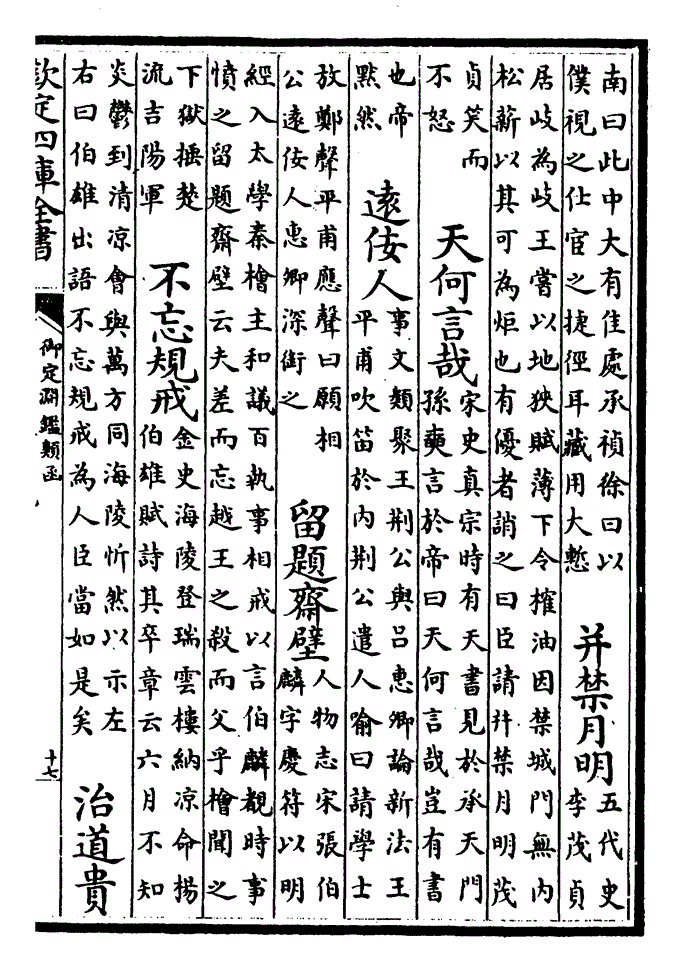 南曰此中大有佳處承禎徐曰以
僕視之仕宦之捷徑耳藏用大慙
并禁月明
五代史
李茂貞
居岐為岐王嘗以地狹賦薄下令榷油因禁城門無内
松薪以其可為炬也有優者誚之曰臣請并禁月明茂
貞笑而
不怒
天何言哉
宋史真宗時有天書見於承天門
孫奭言於帝曰天何言哉豈有書
也帝
默然
遠佞人
事文類聚王荆公與吕惠卿論新法王
平甫吹笛於内荆公遣人喻曰請學士
放鄭聲平甫應聲曰願相
公遠佞人惠卿深銜之
留題齋壁
人物志宋張伯
麟字慶符以明
經入太學秦檜主和議百執事相戒以言伯麟覩時事
憤之留題齋壁云夫差而忘越王之殺而父乎檜聞之
下獄捶楚
流吉陽軍
不忘規戒
金史海陵登瑞雲樓納凉命楊
伯雄賦詩其卒章云六月不知
炎鬱到清凉會與萬方同海陵忻然以示左
右曰伯雄出語不忘規戒為人臣當如是矣
治道貴
欽定四庫全書
御定淵鑑類函
十七